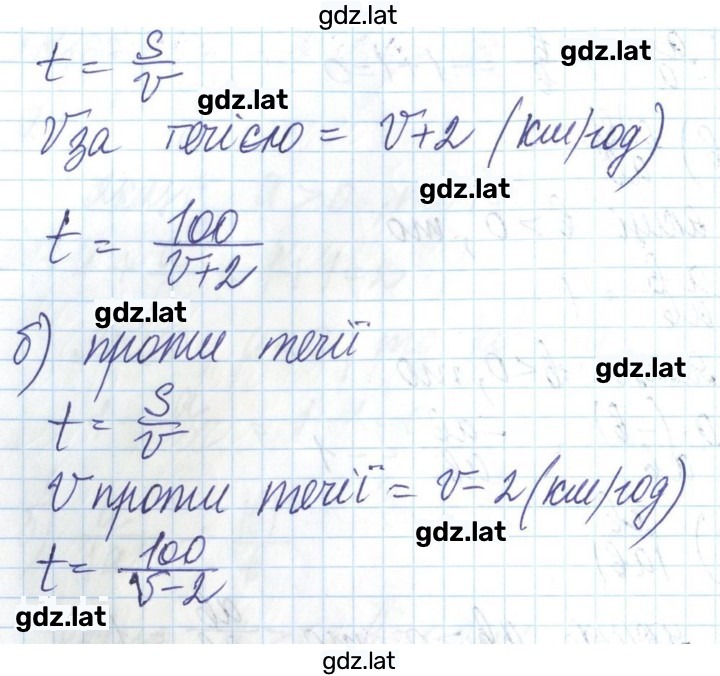 gdz.lat
gdz.lat
t = S/v
gdz.lat
Vза течією = v+2 (км/год)
gdz.lat
t = 100/(v+2)
gdz.lat
б) проти течії
gdz.lat
t = S/v
V проти течії = v-2 (км/год)
gdz.lat
t = 100/(v-2)
gdz.lat
gdz.lat